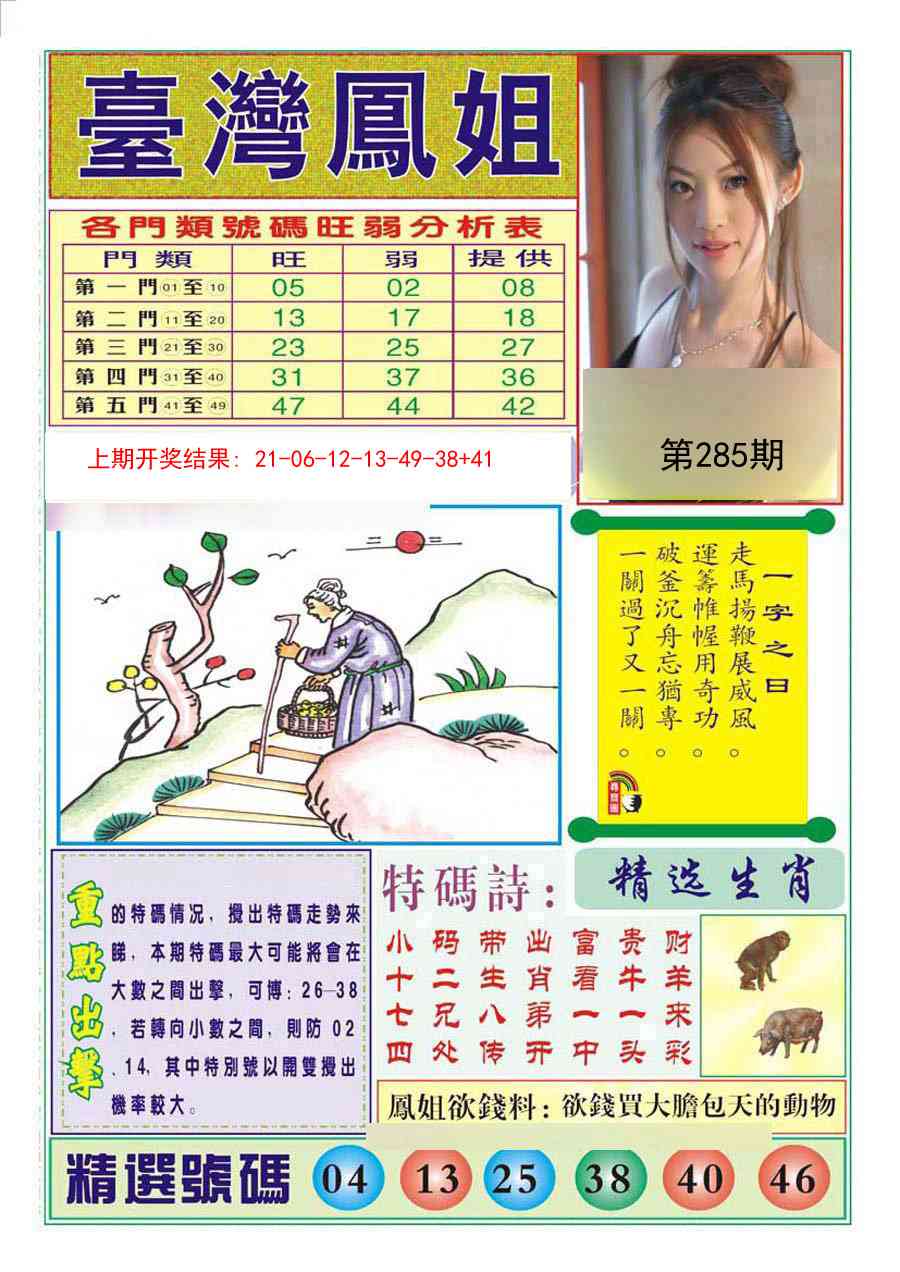 臺灣鳳姐
各門類號碼旺弱分析表
門類 旺 弱 提供
第一門01至10 05 02 08
第二門11至20 13 17 18
第三門21至30 23 25 27
第四門31至40 31 37 36
第五門41至49 47 44 42
上期开奖结果: 21-06-12-13-49-38+41
第285期
一字之曰
走馬揚鞭展威風。
運籌帷幄用奇功。
破釜沉舟忘猶專。
一關過了又一關。
重點出擊
的特碼情況，攪出特碼走勢來
睇，本期特碼最大可能將會在
大數之間出擊，可博：26—38
，若轉向小數之間，則防 02
、14，其中特別號以開雙攪出
機率較大。
特碼詩：
小码带出富贵财
十二生肖看牛羊
七兄八弟一一来
四处传开中头彩
精选生肖
鳳姐欲錢料：欲錢買大膽包天的動物
精選號碼 04 13 25 38 40 46